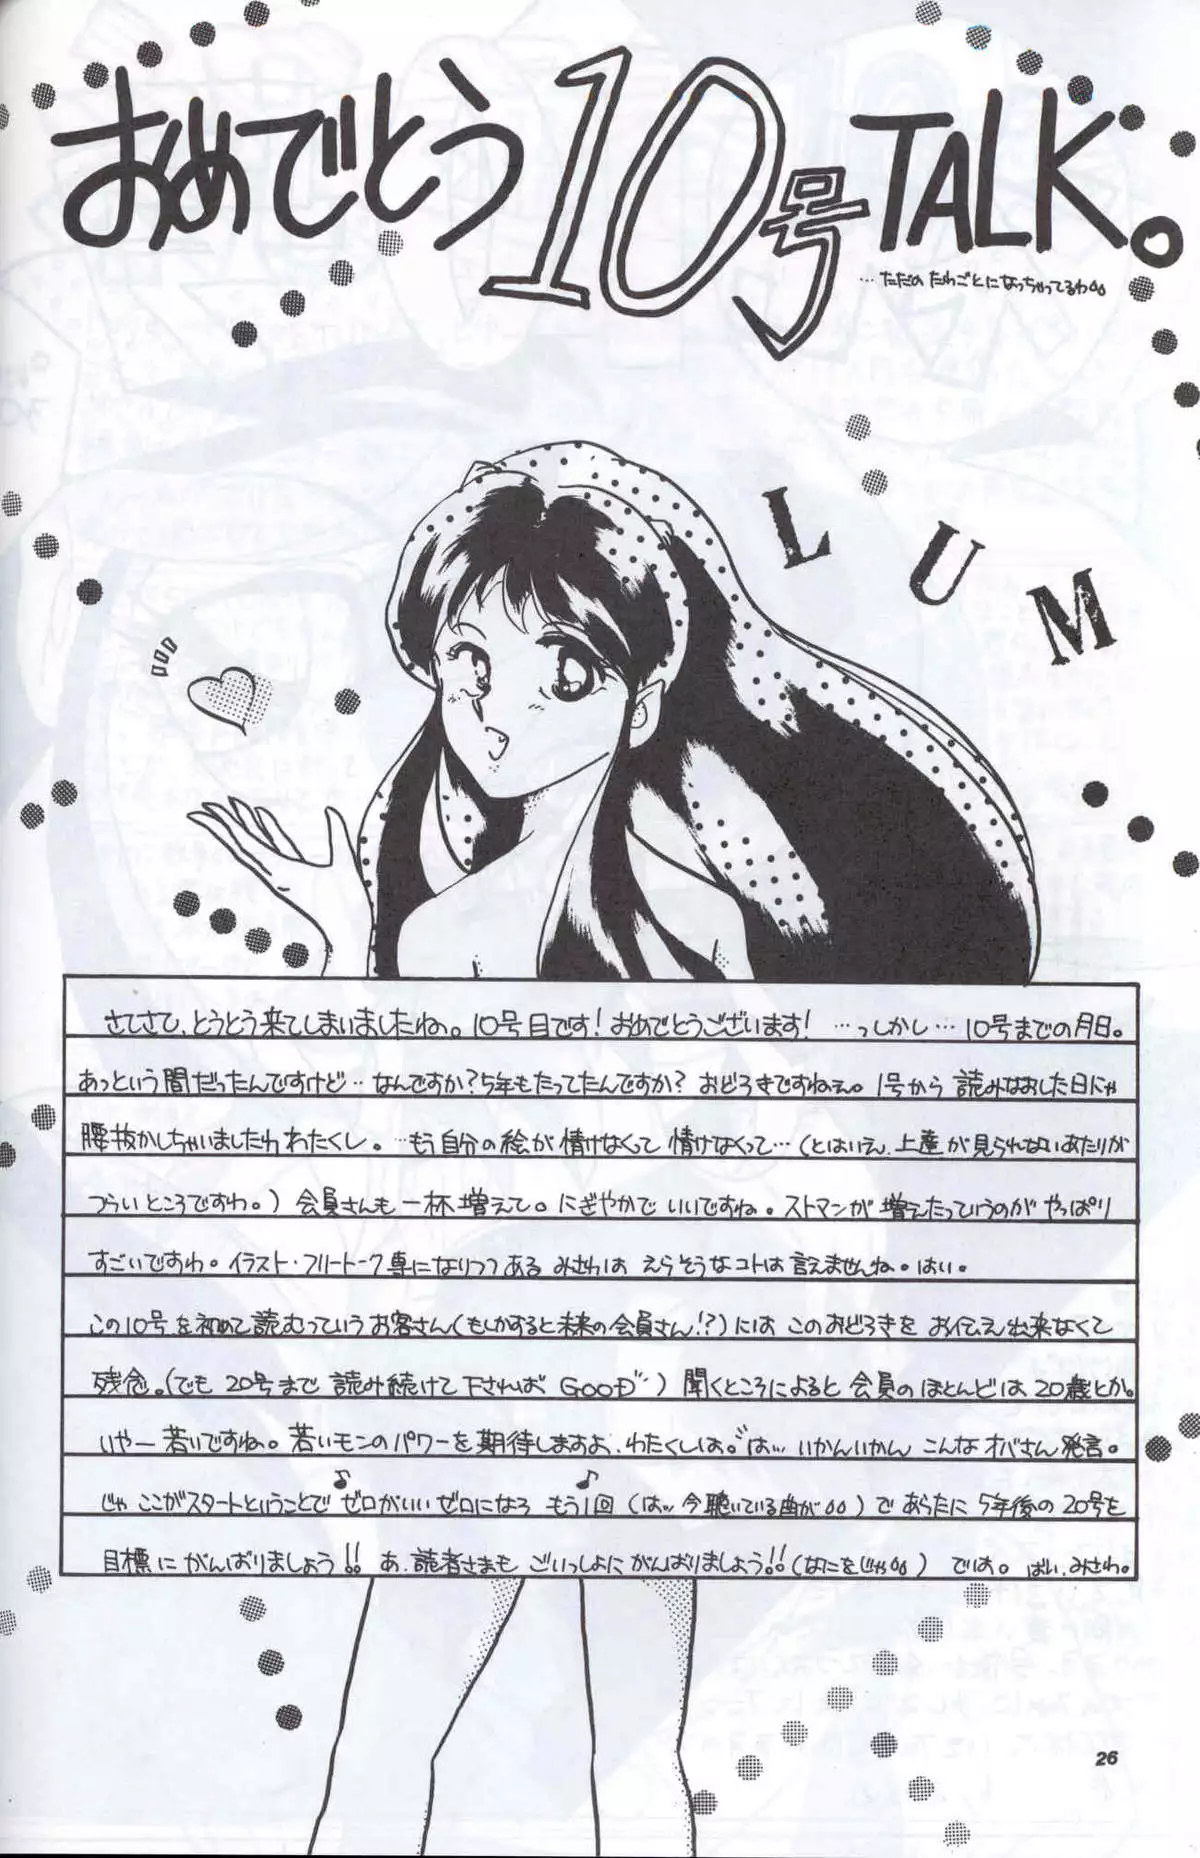 おめでとう10号TALK。
…ただの たわごとになっちゃってるわ。。
LUM
さてさて、とうとう来てしまいましたね。10号目です！おめでとうございます！…っしかし…10号までの月日。
あっという間だったんですけど…なんですか？5年もたってたんですか？おどろきですねぇ。1号から 読みなおした日にゃ
腰抜かしちゃいましたわ わたくし。…もう自分の絵が 情けなくって 情けなくって…（とはいえ、上達が見られないあたりが
つらいところですわ。）会員さんも 一杯増えて。にぎやかで いいですね。ストマンが 増えたっていうのが やっぱり
すごいですわ。イラスト・フリートーク専になりつつある みさわは えらそうなコトは言えませんね。はい。
この10号を初めて読むっていうお客さん（もしかすると未来の会員さん！？）には このおどろきを お伝え出来なくて
残念。（でも 20号まで 読み続けて下されば GOOD）聞くところによると 会員のほとんどは 20歳とか。
いやー 若いですね。若いモンのパワーを期待しますよ、わたくしは。はっ…いかんいかん こんなオバさん発言。
じゃ ここがスタートということで ♪ゼロがいい ゼロになろ もう1回♪（はっ、今聴いている曲が。。）で あらたに 5年後の20号を
目標に がんばりましょう!! あ、読者さまも ごいっしょに がんばりましょう!!（なにをじゃ。。） では。ばい、みさわ。
26